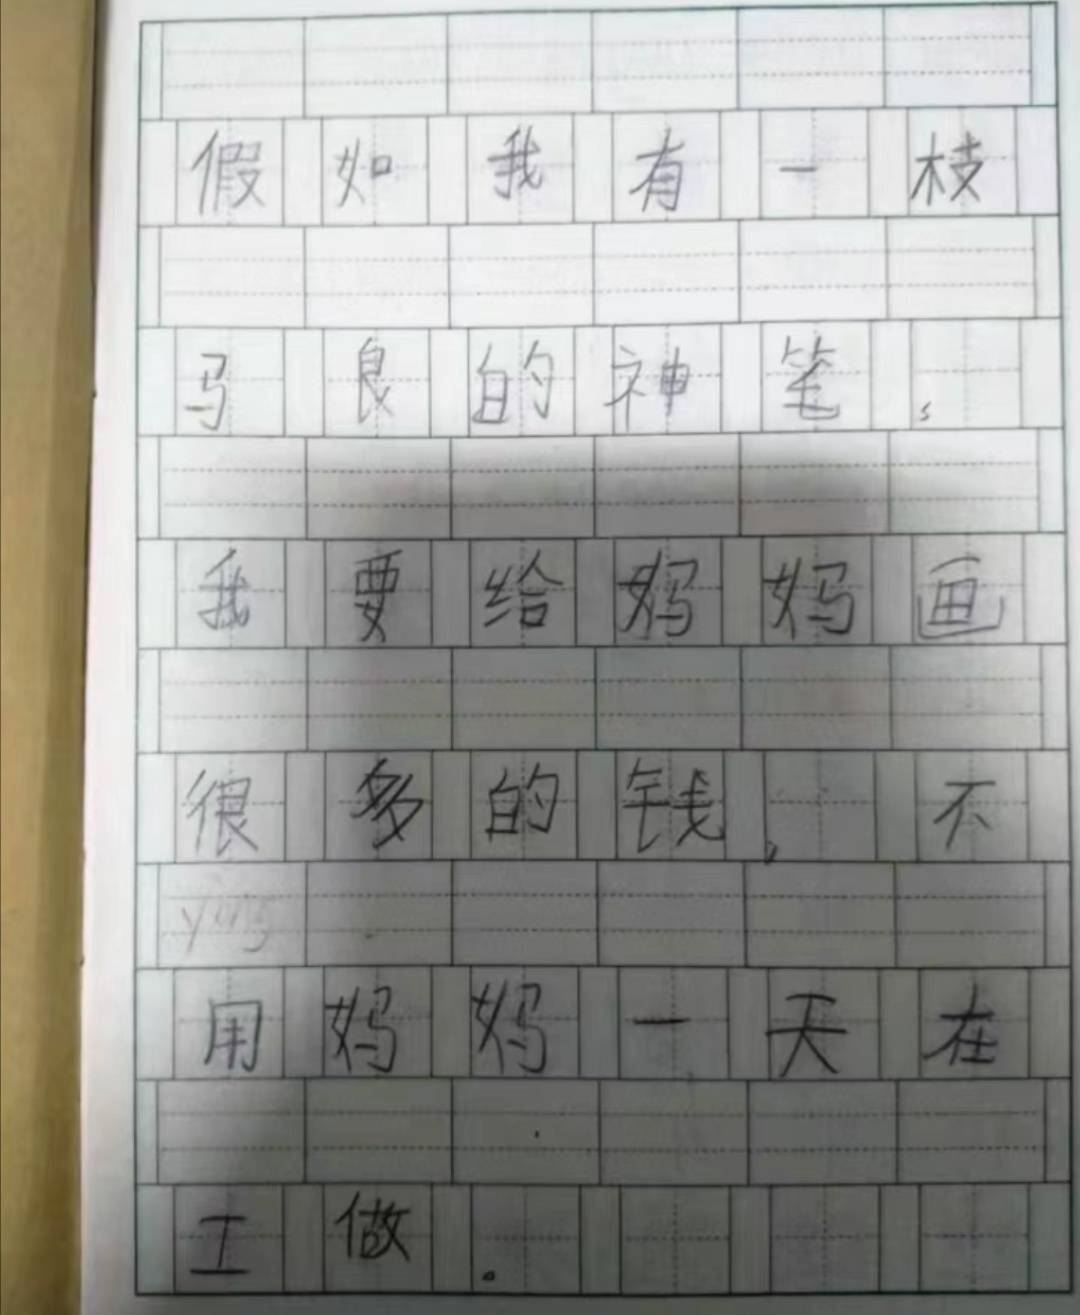 假如我有一枝
马良的神笔，
我要给妈妈画
很多的钱，不
yong
用妈妈一天在
工做。